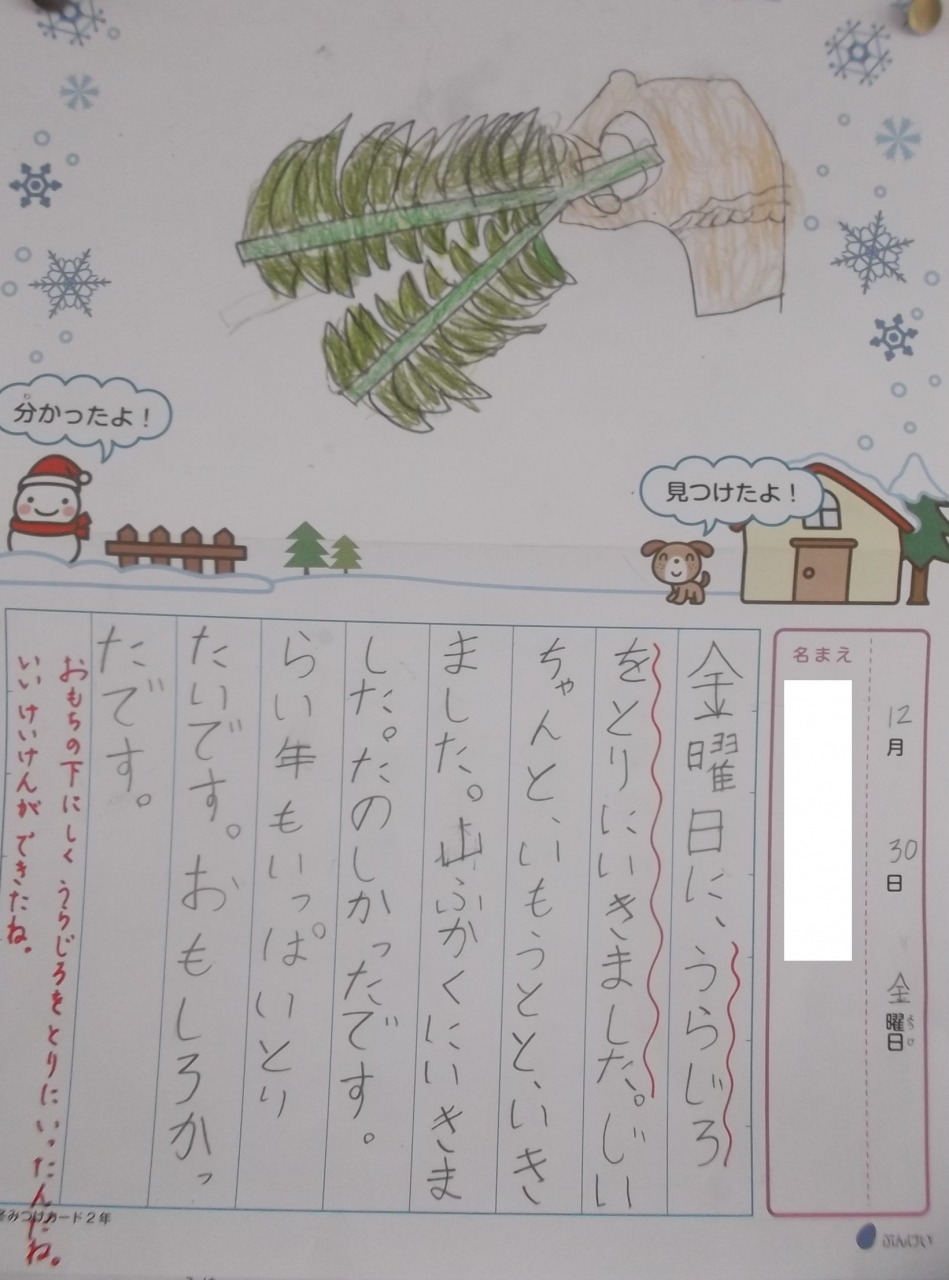 分かったよ！
見つけたよ！
名まえ
12月30日金曜日
金曜日に、うらじろ
をとりにいきました。じい
ちゃんと、いもうとと、いき
ました。山ふかくにいきま
した。たのしかったです。
らい年もいっぱいとり
たいです。おもしろかっ
たです。
おもちの下にしくうらじろをとりにいったんだね。
いいけいけんができたね。
冬みつけカード2年
ぶんけい